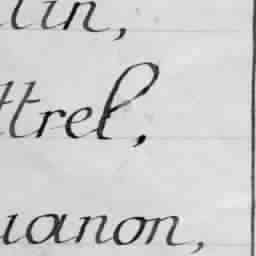 tin,
ttrel,
uanon,